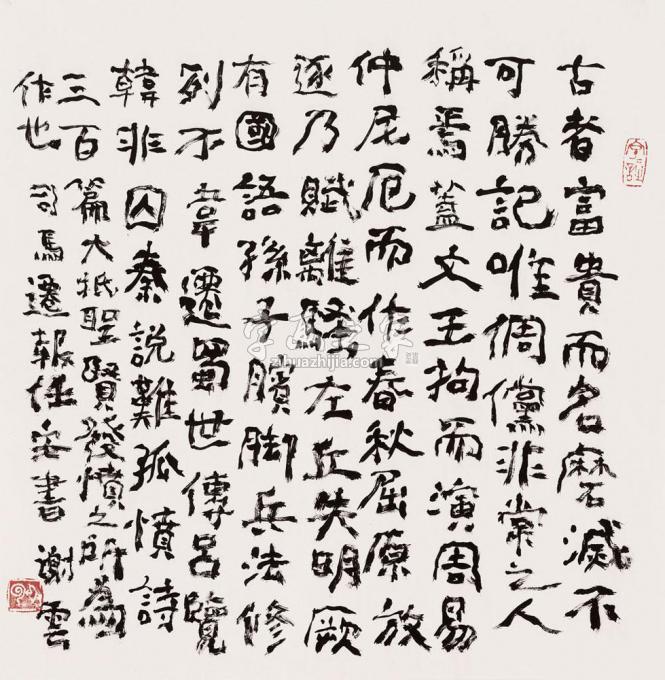 古者富貴而名磨滅不
可勝記唯倜儻非常之人
稱焉蓋文王拘而演周易
仲尼厄而作春秋屈原放
逐乃賦離騷左丘失明厥
有國語孫子臏脚兵法修
列不韋遷蜀世傳呂覽
韓非囚秦說難孤憤詩
三百篇大抵聖賢發憤之所為
作也 司馬遷報任安書 謝雲
字画之家
zihuazhijia.com